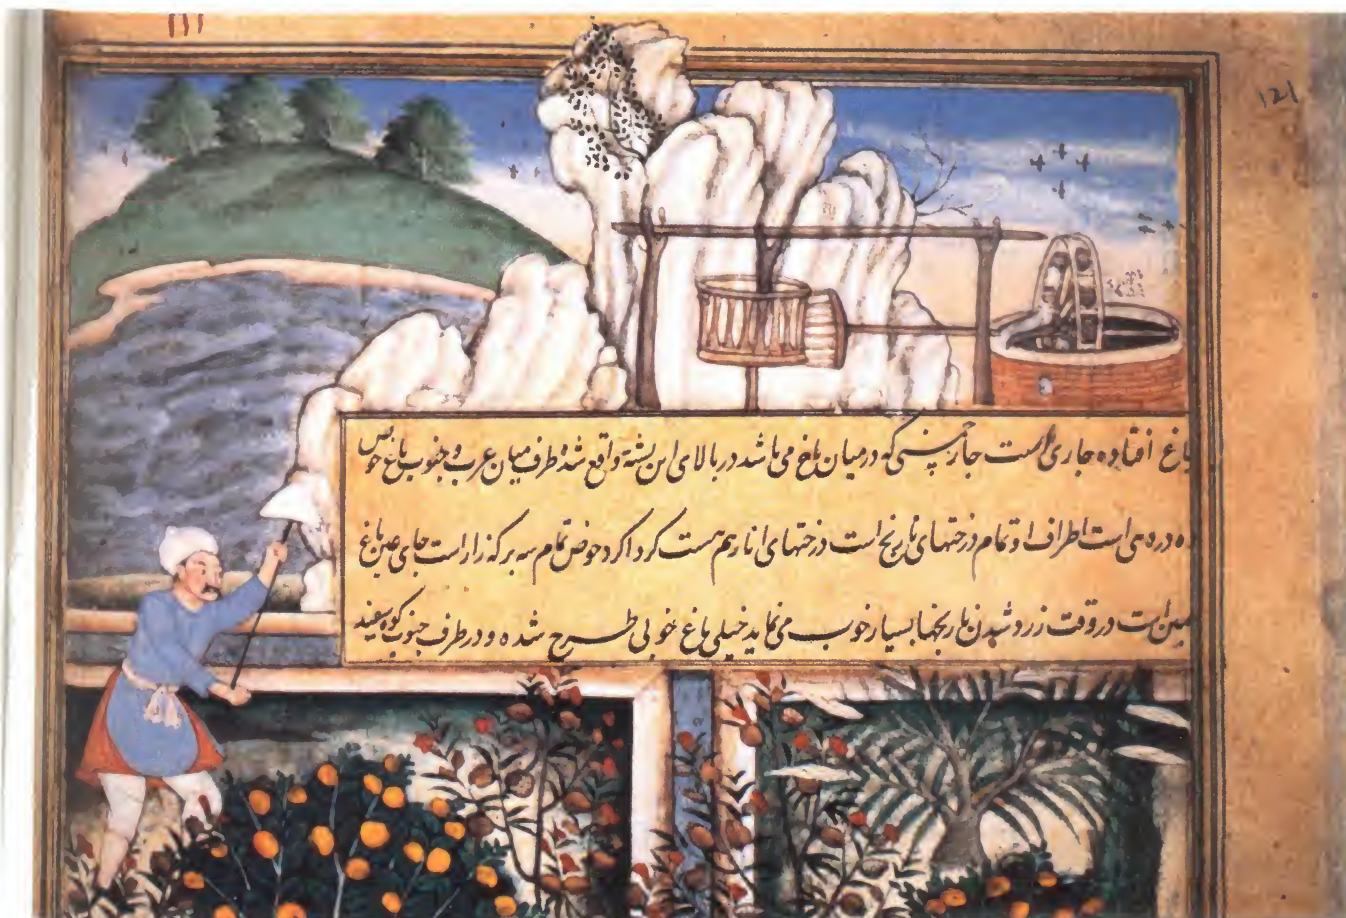 ۱۱۱
۱۲۱
باغ افتاده جاری است جار چمنی که در میان باغ می باشد در بالای این پشته واقع شده طرف میان غرب و جنوب باغ حوض
ده در ده است اطراف او تمام درختهای نارنج است درختهای انار هم هست کرداکرد حوض تمام سه برکه زار است جای عین باغ
همین است در وقت زرد شدن نارنجها بسیار خوب می نماید خیلی باغ خوبی طرح شده و در طرف جنوب کوه سفید